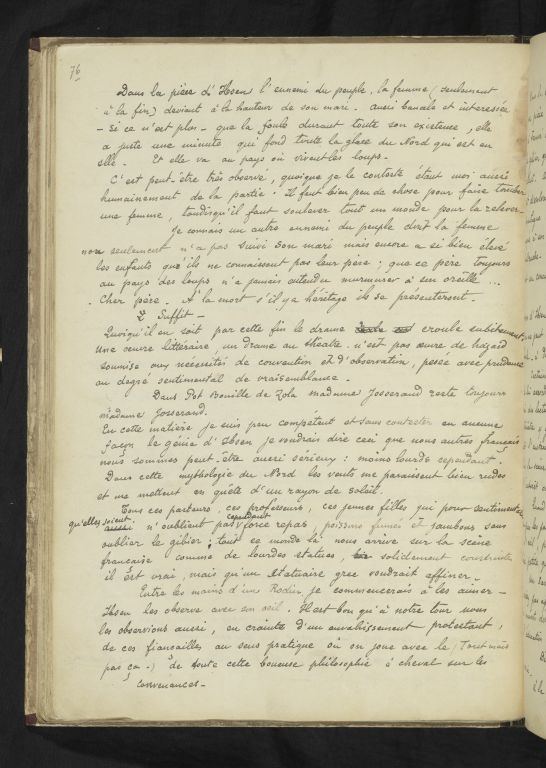 76
Dans la pièce d'Ibsen l'ennemi du peuple, la femme (seulement
à la fin) devient à la hauteur de son mari. Aussi banale et interessée
- si ce n'est plus - que la foule durant toute son existence, elle
a juste une minute qui fond toute la glace du Nord qui est en
elle. Et elle va au pays où vivent les loups.
C'est peut-être très observé, quoique je le conteste étant moi aussi
humainement de la partie. Il faut bien peu de chose pour faire tomber
une femme, tandisqu'il faut soulever tout un monde pour la relever.
Je connais un autre ennemi du peuple dont la femme
non seulement n'a pas suivi son mari mais encore a si bien élevé
les enfants qu'ils ne connaissent pas leur père; que ce père toujours
au pays des loups n'a jamais entendu murmurer à son oreille ...
Cher père. A la mort s'il y a héritage ils se présenteront.
Suffit -
Quoiqu'il en soit par cette fin le drame croule subitement.
Une œuvre littéraire, un drame au théâtre n'est pas œuvre de hazard
soumise aux nécéssités de convention et d'observation, pesée avec prudence
au degré sentimental de vraisemblance.
Dans Pot Bouille de Zola madame Josserand reste toujours
madame Josserand.
En cette matière je suis peu compétent et sans contester en aucune
façon le génie d'Ibsen je voudrais dire ceci que nous autres français
nous sommes peut-être aussi sérieux: moins lourds cependant.
Dans cette mythologie du Nord les vents me paraissent bien rudes
et me mettent en quête d'un rayon de soleil.
Tous ces pasteurs, ces professeurs, ces jeunes filles qui pour sentimentales
qu'elles soient cependant
n'oublient pas force repas poissons fumés et jambons sans
oublier le gibier; tout ce monde là nous arrive sur la scène
française comme de lourdes statues, solidement construites
il est vrai, mais qu'un statuaire grec voudrait affiner.
Entre les mains d'un Rodin je commencerais à les aimer -
Ibsen les observe avec son œil. Il est bon qu'à notre tour nous
les observions aussi, en crainte d'un envahissement protestant,
de ces fiançailles au sens pratique où on joue avec le (Tout mais
pas ça -) de toute cette boueuse philosophie à cheval sur les
convenances -